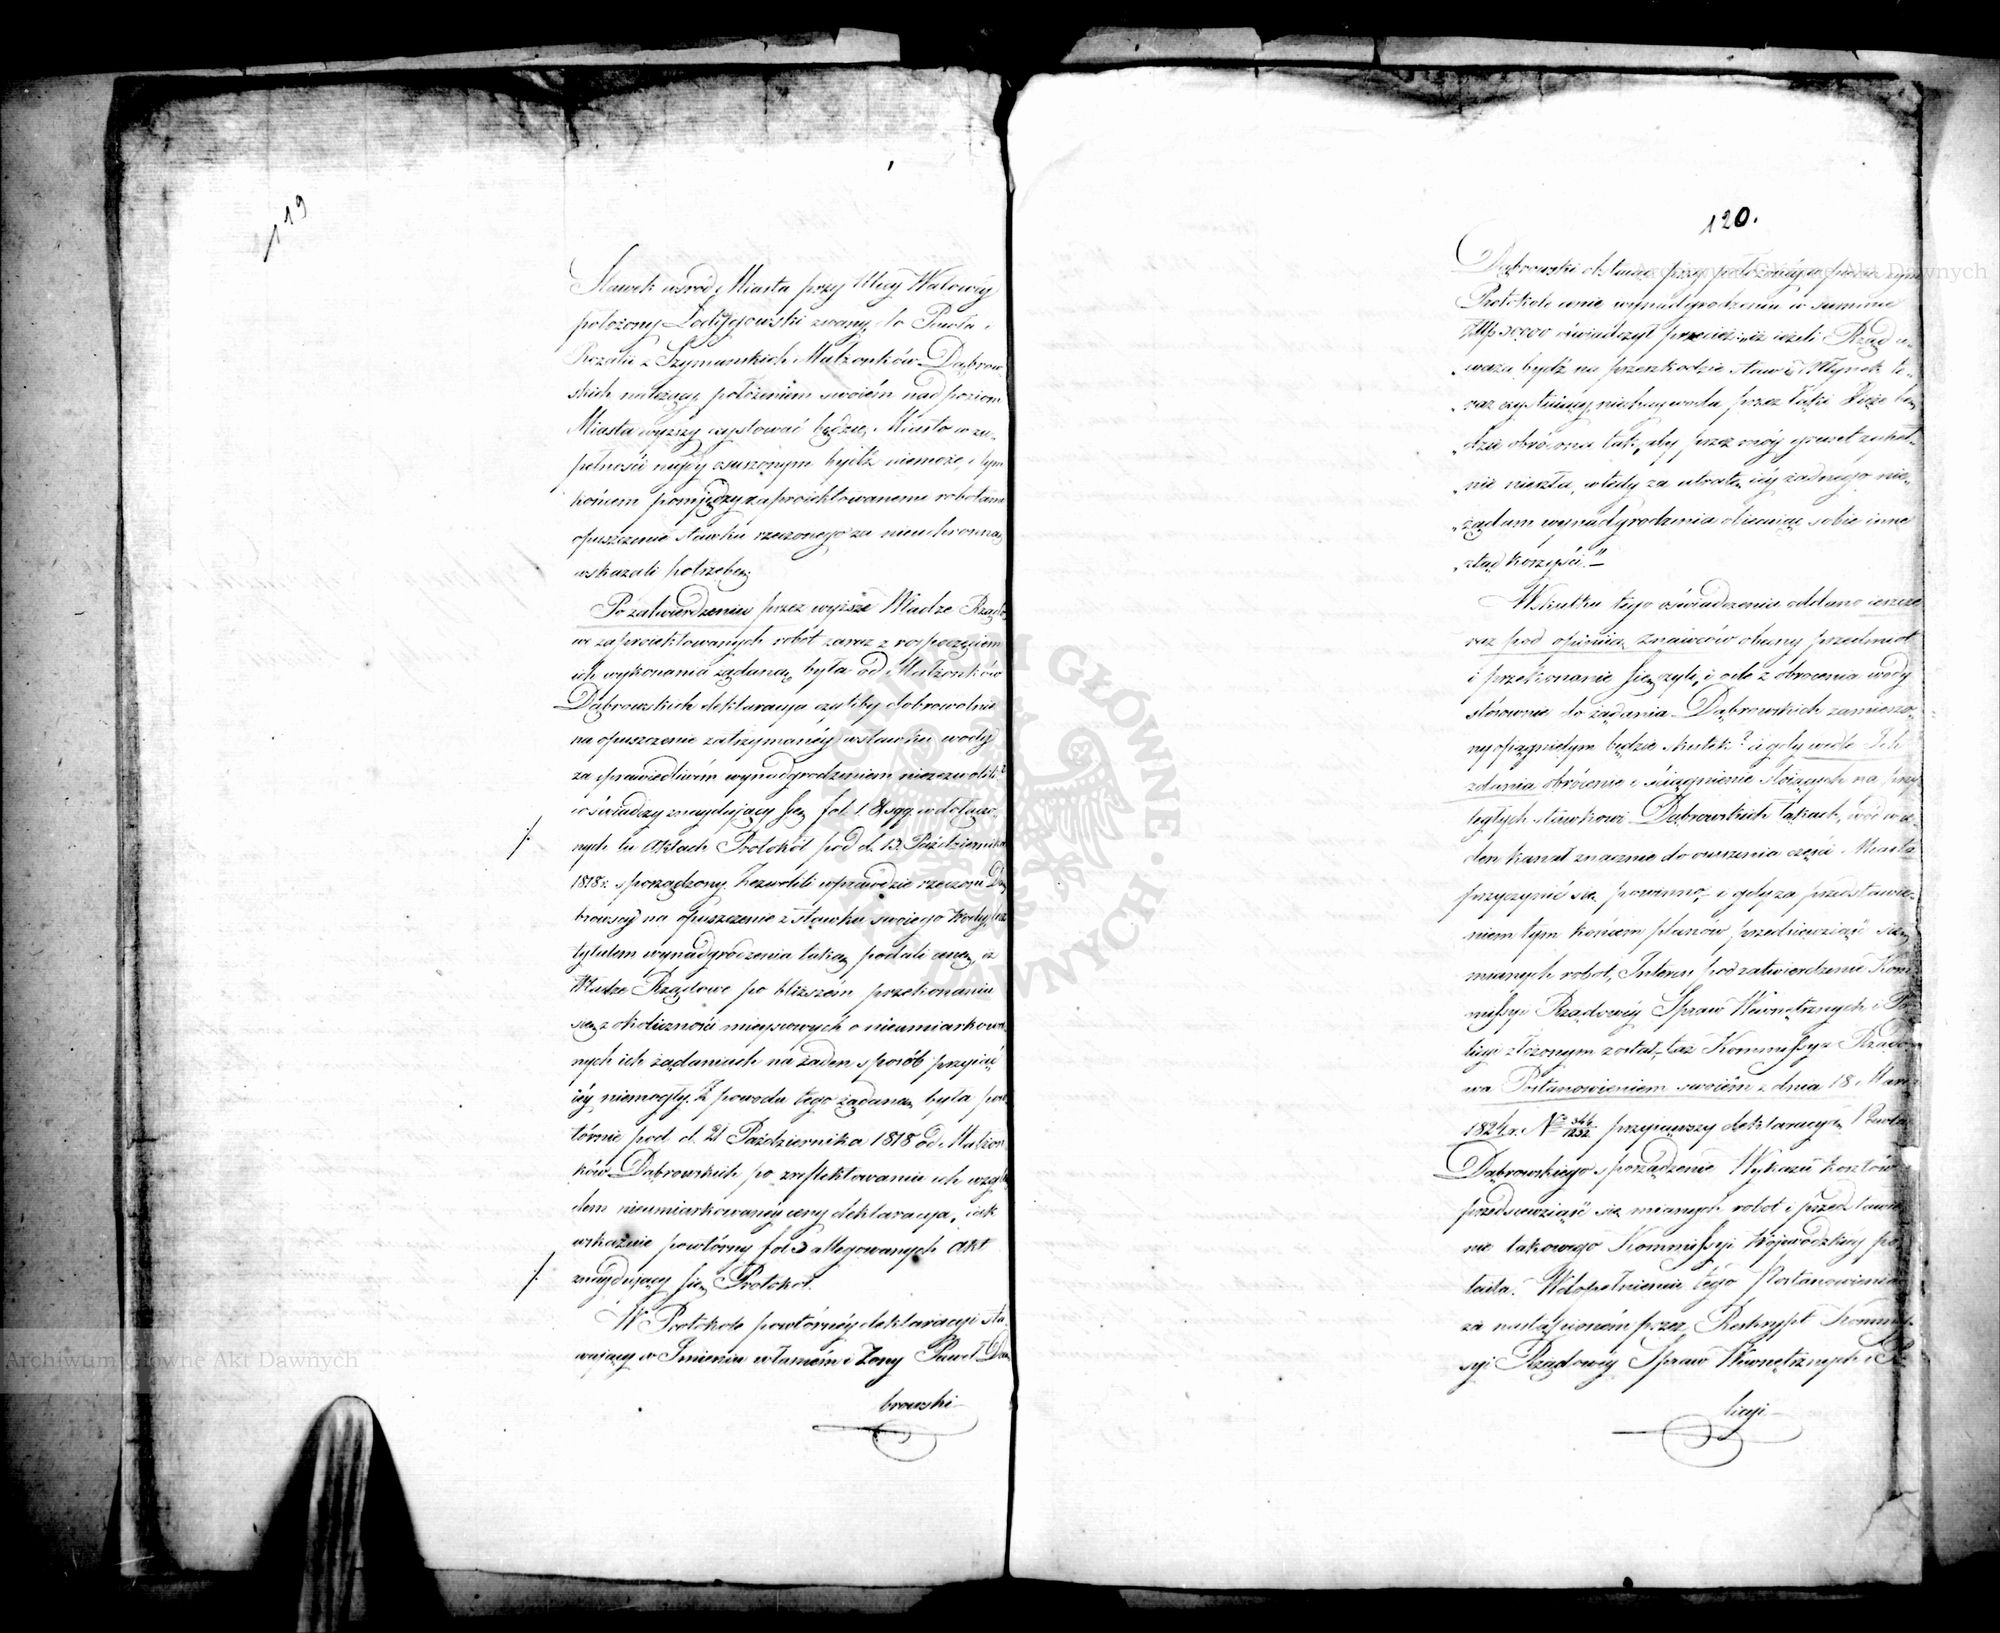 119
Stawek wśród Miasta przy Ulicy Wałowéy
położony zwany, do Pawła i
Rozalii z Szymanskich Małżonków Dąbrow-
skich należący, położeniem swoiém nad poziom
Miasta wyższy exystować będzie, Miasto w zu-
pełności nigdy osuszonym bydź niemoże, i tym
końcem pomiędzy zaproiektowanemi robotami
opuszczenie stawku rzeczonego za nieuchronną
wskazali potrzebę.
Po zatwierdzeniu przez wyższe Władze Rządo-
we zaproiektowanych robot zaraz z rospoczęciem
ich wykonania żądaną była od Małżonków
Dąbrowskich deklaracya czyliby dobrowolnie
na opuszczenie zatrzymanéy w stawku wody
za sprawiedliwém wynadgrodzeniem niezezwolili?
io świadczy znayduiący się fol. 1. & sqq. w dołączo-
nych tu Aktach Protokół pod d. 13. Października
1818 r. sporządzony. Zezwolili wprawdzie rzeczeni Dą-
browscy na opuszczenie z stawku swoiego Wody, lecz
tytułem wynadgrodzenia taką podali cenę, iż
Władze Rządowe po bliższém przekonaniu
się z okoliczności mieyscowych o nieumiarkowa-
nych ich żądaniach na żaden sposób przyiąć
iéy niemogły. Z powodu tego żądaną była pow-
tórnie pod d. 21 Października 1818 od Małżon-
ków Dąbrowskich po zreflektowaniu ich wzglę-
dem nieumiarkowanéy ceny deklaracya, iak
wskazuie powtórny fol. 3 allegowanych Akt
znayduiący się Protokół.
W Protokole powtórnéy deklaracyi sta-
waiący w Imieniu własném i Żony Paweł Dą-
browski
120.
Dąbrowski obstaiąc przy położonéy w pierwszym
Protokole cenie wynadgrodzenia w summie
oświadczył przecież: „iż ieżeli Rząd u-
„waża bydź na przeszkodzie staw i Młynek te-
„raz czystniący, niechay woda przez łąki będ-
„dzie obrócona tak, aby przez móy grunt zupeł-
„nie nieszła, wtedy za utratę iéy żadnego nie-
„żądam wynadgrodzenia obiecuiąc sobie inne
„ztąd korzyści.“ _
Wskutku tego oświadczenia oddano ieszcze
raz pod opinią Znawców obecny przedmiot
i przekonanie się, czyli, i o ile z obrócenia wody
stósownie do żądania Dąbrowskich zamierzo-
ny osiągniętym będzie skutek? a gdy wedle Ich
zdania obrócenie i ściągnienie stoiących na przy-
ległych stawkowi Dąbrowskich łąkach, wód w ie-
den kanał znacznie do osuszenia części Miasta
przyczynić się powinno, i gdy za przedstawie-
niem tym końcem planów przedsiewziąść się
mianych robot, Interes pod zatwierdzenie Kom-
missyi Rządowéy Spraw Wewnętrznych i Po-
licyi złożonym został, taż Kommissya Rządo-
wa Postanowieniem swoiém z dnia 18 Marca
1824 r. No przyiąwszy deklaracyą Pawła
Dąbrowskiego sporządzenie Wykazu kosztów
przedsiewziąść się mianych robot i przedstawie-
nie takowego Kommissyi Wojewódzkiéy po-
leciła. W dopełnieniu tego Postanowienia
za nastąpioném przez Reskrypt Kommis-
syi Rządowéy Spraw Wewnętrznych i Po-
licyi
Archiwum Główne Akt Dawnych
Archiwum Główne Akt Dawnych